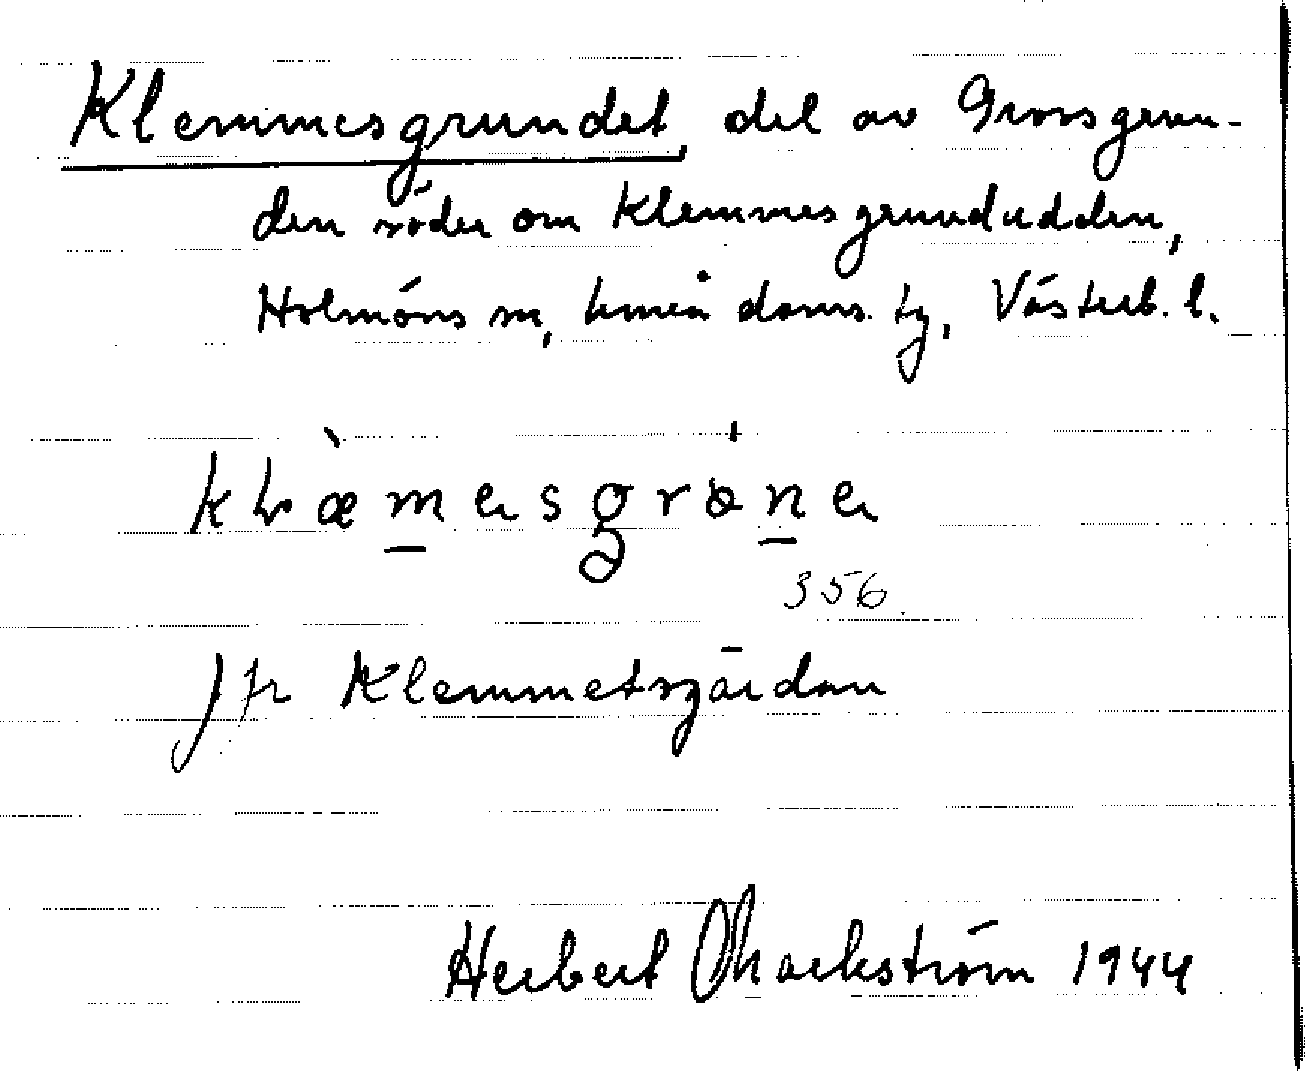 Klemmesgrundet, del av Grossgrun-
den söder om Klemmesgrundudden,
Holmöns sn, Umeå doms. tg, Västerb. l.
356.
Jfr Klemmetsgärdan
Herbert Markström 1944